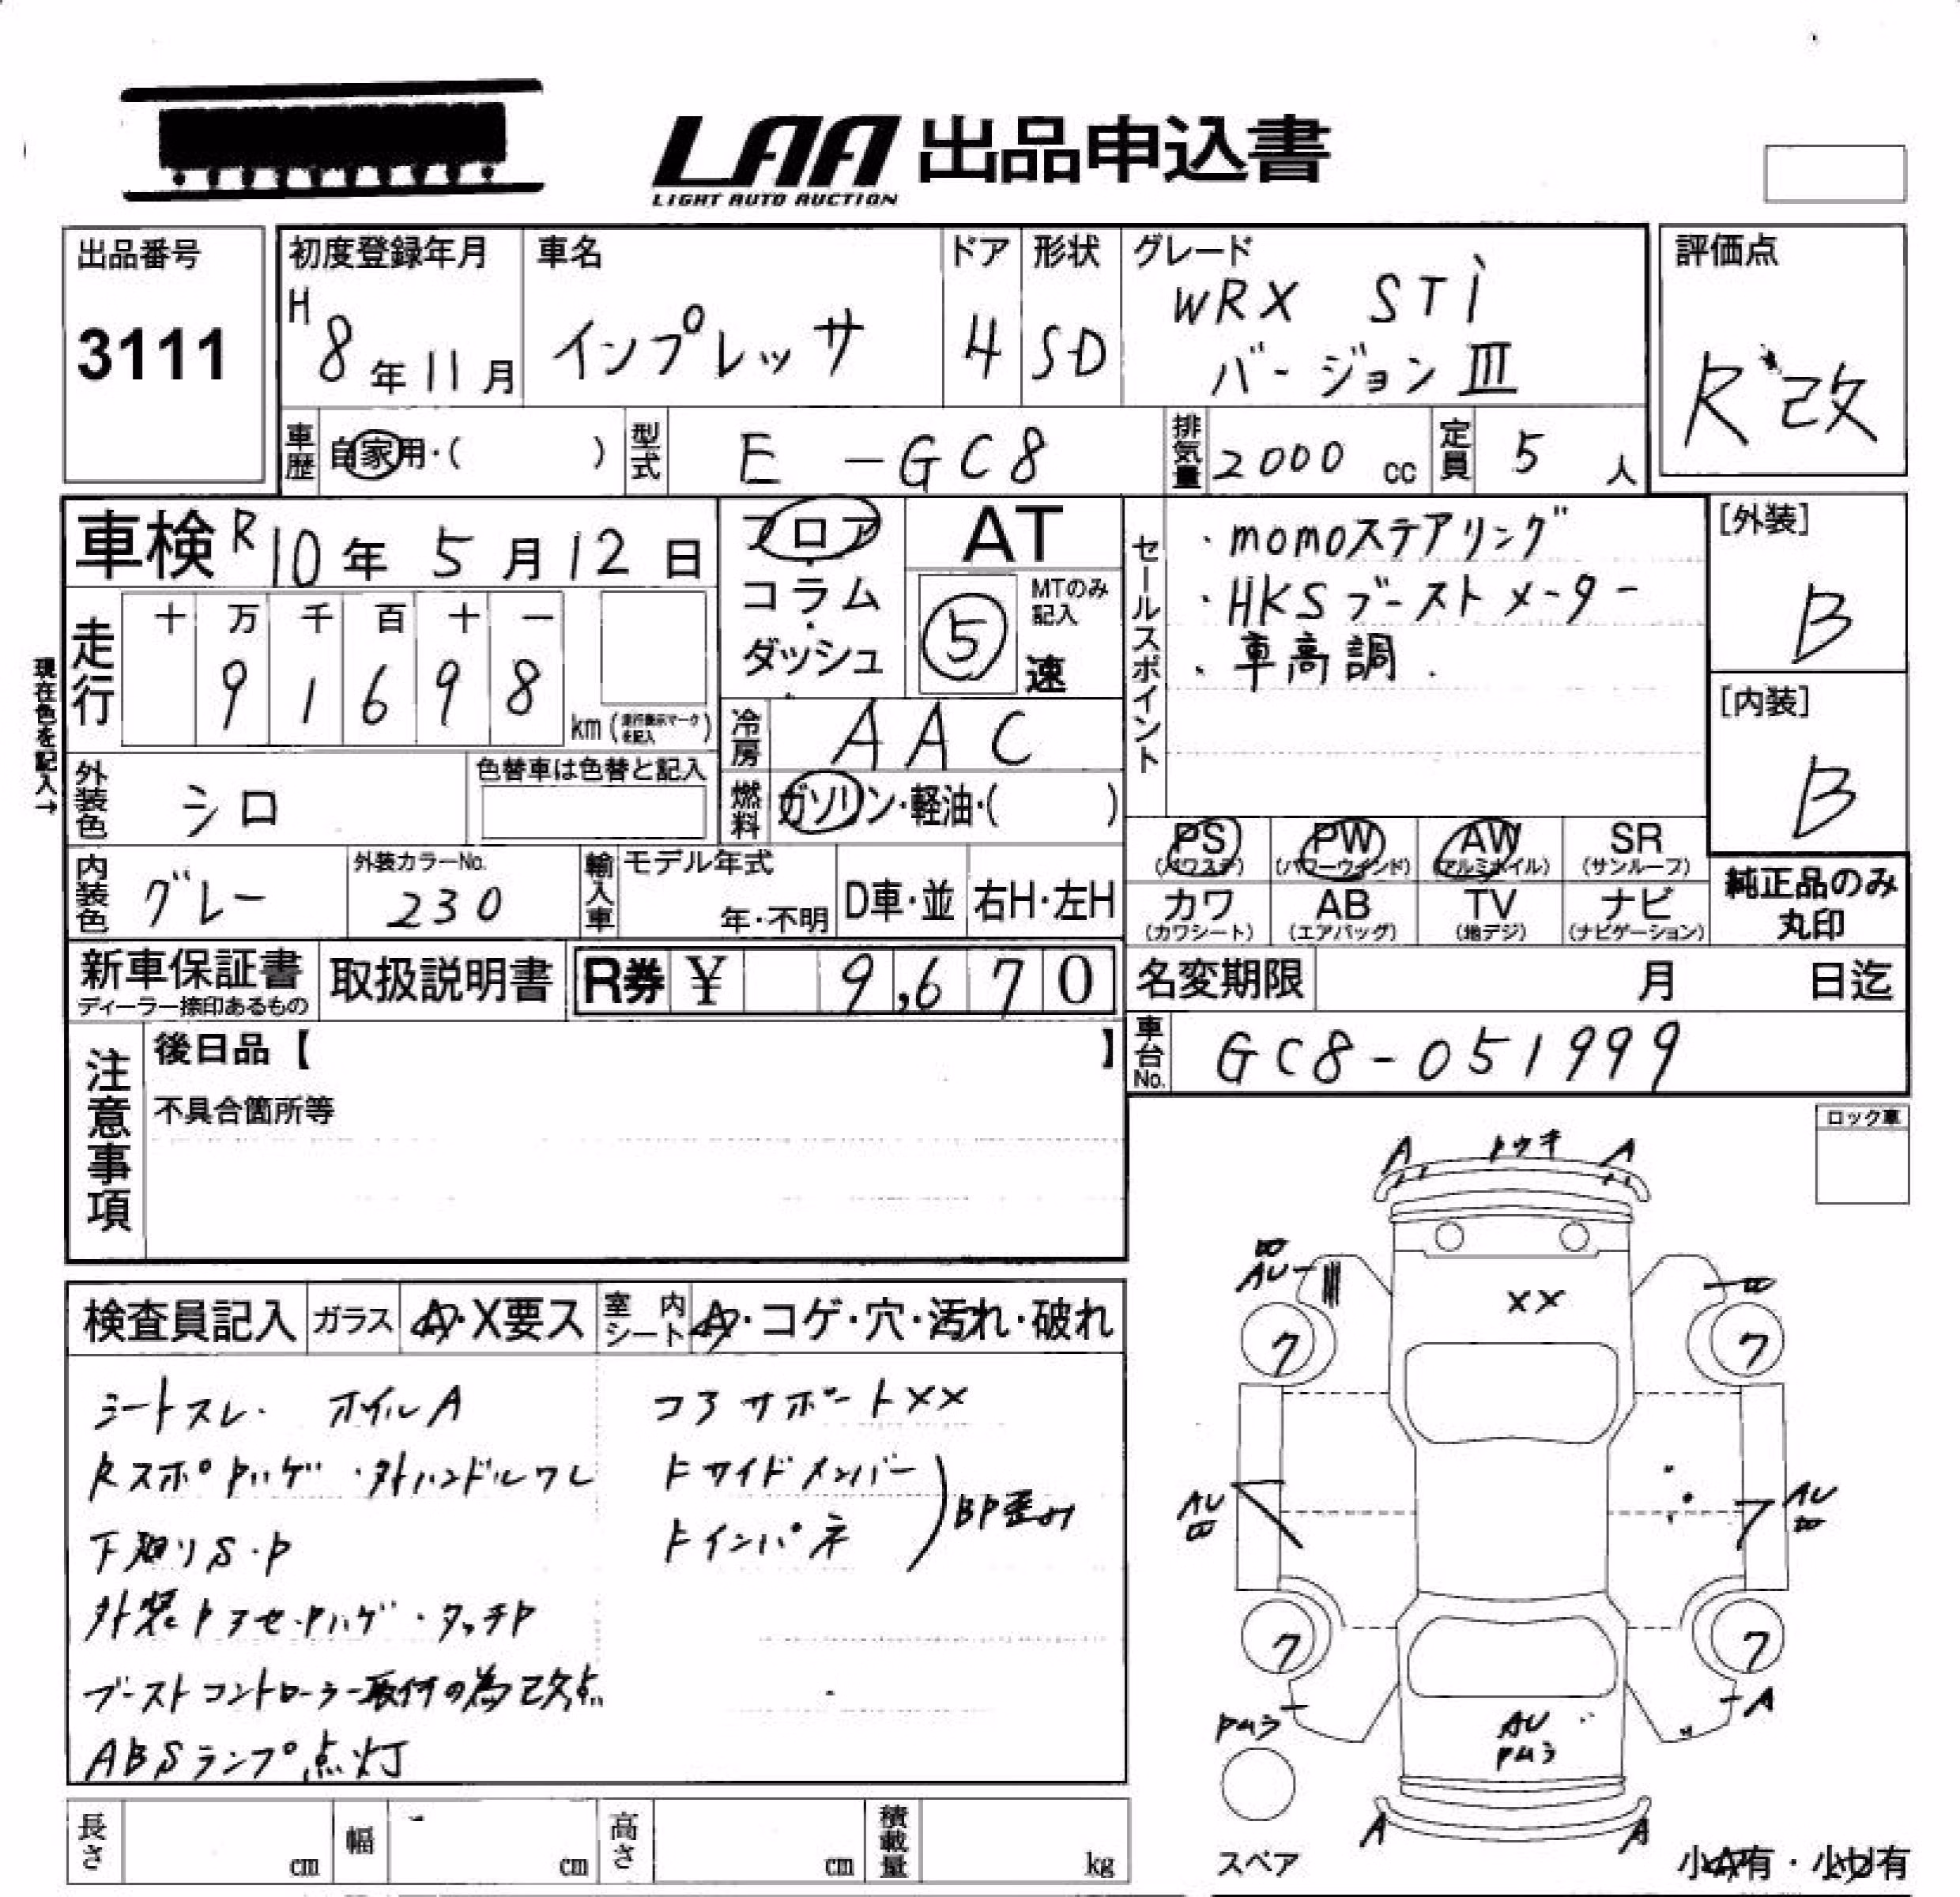 LAA 出品申込書
LIGHT AUTO AUCTION
出品番号
3111
初度登録年月
H8年11月
車名
インプレッサ
ドア
4
形状
SD
グレード
WRX STi
バージョンⅢ
評価点
R 改
車歴 自家用・( )
型式 E-GC8
排気量 2000 cc
定員 5 人
車検 R10年5月12日
フロア
コラム
ダッシュ
AT
⑤
MTのみ記入
速
セールスポイント
・momoステアリング
・HKSブーストメーター
・車高調
[外装]
B
[内装]
B
現在色を記入→
走行
十 万 千 百 十 一
9 1 6 9 8
km (走行表示マークを記入)
冷房 AAC
燃料 ガソリン・軽油・( )
外装色 シロ
色替車は色替と記入
内装色 グレー
外装カラーNo.
230
輸入車
モデル年式
年・不明
D車・並
右H・左H
PS (パワステ)
PW (パワーウインド)
AW (アルミホイル)
SR (サンルーフ)
カワ (カワシート)
AB (エアバッグ)
TV (地デジ)
ナビ (ナビゲーション)
純正品のみ
丸印
新車保証書
ディーラー捺印あるもの
取扱説明書
R券 ¥ 9,670
名変期限 月 日迄
車台No. GC8-051999
注意事項
後日品【 】
不具合箇所等
ロック車
検査員記入
ガラス A・X要ス
室内シート A・コゲ・穴・汚れ・破れ
シートスレ・ オイルA
RスポPハゲ・外ハンドルワレ
下廻りS・P
外装Pアセ・Pハゲ・タッチP
ブーストコントローラー取付の為改点
ABSランプ点灯
コアサポートXX
Fサイドメンバー
Fインパネ
BP歪み
A トウキ A
AU
XX
ワ ワ
AU AU
ワ ワ
A
AU
A A
スペア
長さ cm
幅 cm
高さ cm
積載量 kg
小A有・小U有